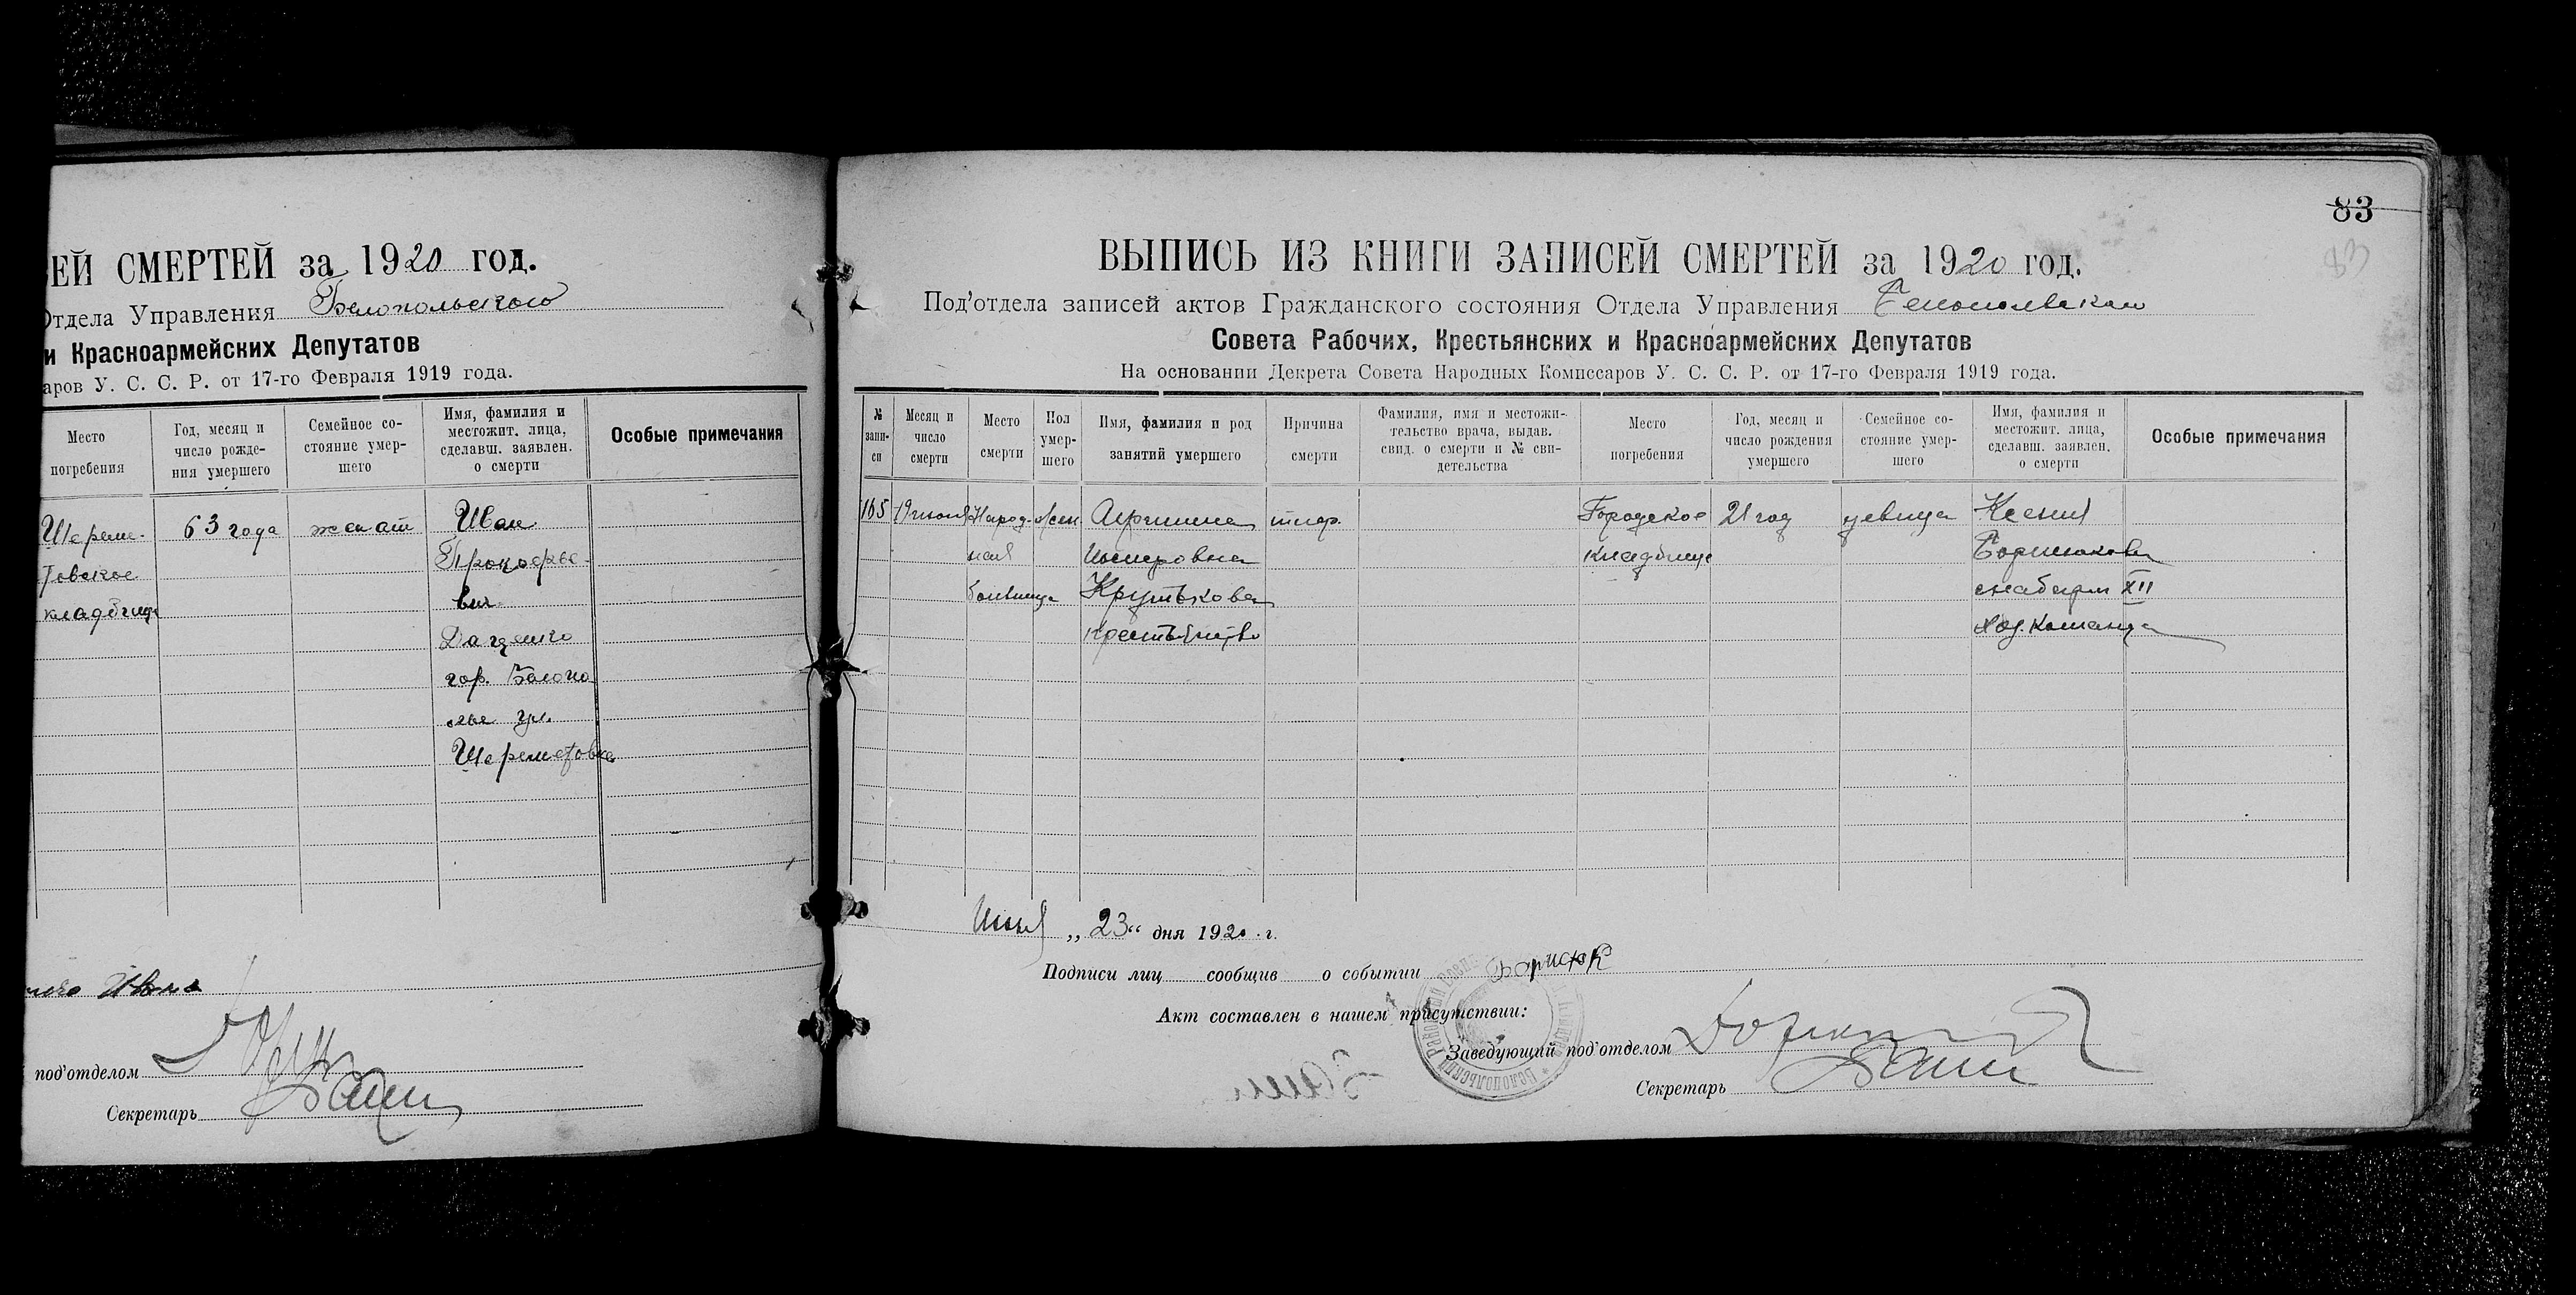 ЕЙ СМЕРТЕЙ за 1920 год.
Отдела Управления Белопольского
и Красноармейских Депутатов
аров У. С. С. Р. от 17-го Февраля 1919 года.
Место погребения
Год, месяц и число рожде-ния умершего
Семейное со-стояние умер-шего
Имя, фамилия и местожит. лица, сделавш. заявлен. о смерти
Особые примечания
Шереме- 63 года женат Иван
товское Прокофье-
кладбище вич
Даценко
гор. Белопо
лье ул.
Шереметовка
Ивана
под'отделом
Секретарь
83
83
ВЫПИСЬ ИЗ КНИГИ ЗАПИСЕЙ СМЕРТЕЙ за 1920 год.
Под'отдела записей актов Гражданского состояния Отдела Управления Белопольского
Совета Рабочих, Крестьянских и Красноармейских Депутатов
На основании Декрета Совета Народных Комиссаров У. С. С. Р. от 17-го Февраля 1919 года.
№ запи-си
Месяц и число смерти
Место смерти
Пол умер-шего
Имя, фамилия и род занятий умершего
Причина смерти
Фамилия, имя и местожи-тельство врача, выдав. свид. о смерти и № сви-детельства
Место погребения
Год, месяц и число рождения умершего
Семейное со-стояние умер-шего
Имя, фамилия и местожит. лица, сделавш. заявлен. о смерти
Особые примечания
165 19 июня Народ- жен тиф. Городское 21 год девица Ксения
ная кладбище
больница Крутькова XII
Июня „ 23 “ дня 1920 г.
Подписи лиц сообщив о событии Борисюк
Акт составлен в нашем присутствии:
Заведующий под'отделом
Секретарь